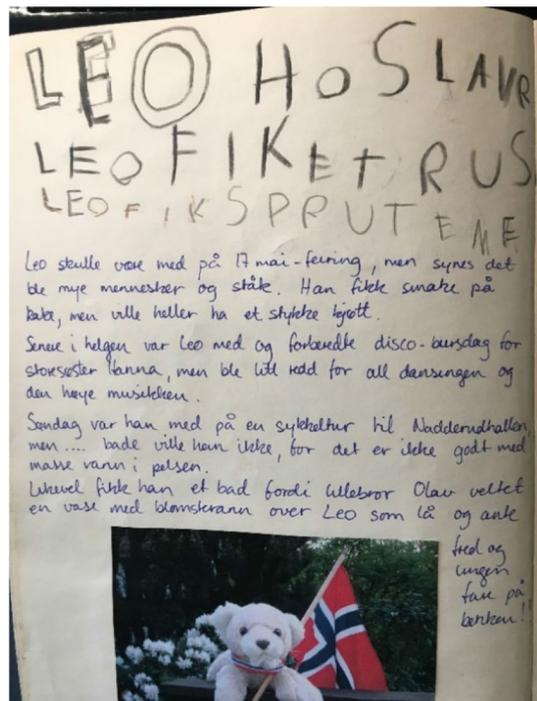 LEO HOS LAUR
LEO FIK ET RUS
LEO FIK SPRUTEME
Leo skulle være med på 17 mai-feiring, men synes det
ble mye mennesker og ståk. Han fikk smake på
kake, men ville heller ha et stykke kjøtt.
Senere i helgen var Leo med og forberedte disco-bursdag for
storesøster Hanna, men ble litt redd for all dansingen og
den høye musikken.
Søndag var han med på en sykkeltur til Nadderudhallen,
men.... bade ville han ikke, for det er ikke godt med
masse vann i pelsen.
Likevel fikk han et bad fordi lillebror Olav veltet
en vase med blomstervann over Leo som lå og ante
fred og
ingen
fare på
benken!!